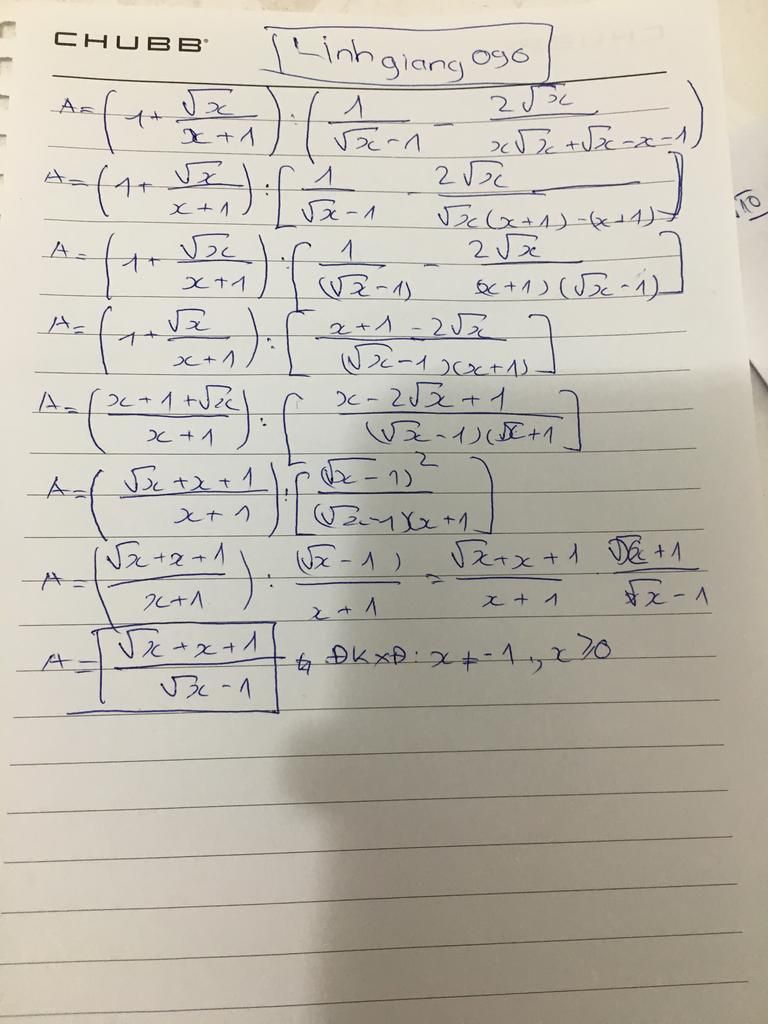 CHUBB
Linhgiang090
A = (1 + √x/(x + 1)) : (1/(√x - 1) - 2√x/(x√x + √x - x - 1))
A = (1 + √x/(x + 1)) : [1/(√x - 1) - 2√x/(√x(x + 1) - (x + 1))]
A = (1 + √x/(x + 1)) : [1/(√x - 1) - 2√x/((x + 1)(√x - 1))]
A = (1 + √x/(x + 1)) : [(x + 1 - 2√x)/((√x - 1)(x + 1))]
A = ((x + 1 + √x)/(x + 1)) : [(x - 2√x + 1)/((√x - 1)(x + 1]
A = ((√x + x + 1)/(x + 1)) : [(√x - 1)²/((√x - 1)(x + 1)]
A = ((√x + x + 1)/(x + 1)) : (√x - 1)/(x + 1) = (√x + x + 1)/(x + 1) (x + 1)/(√x - 1)
A = (√x + x + 1)/(√x - 1) ĐKXĐ: x ≠ -1, x ≥ 0
10